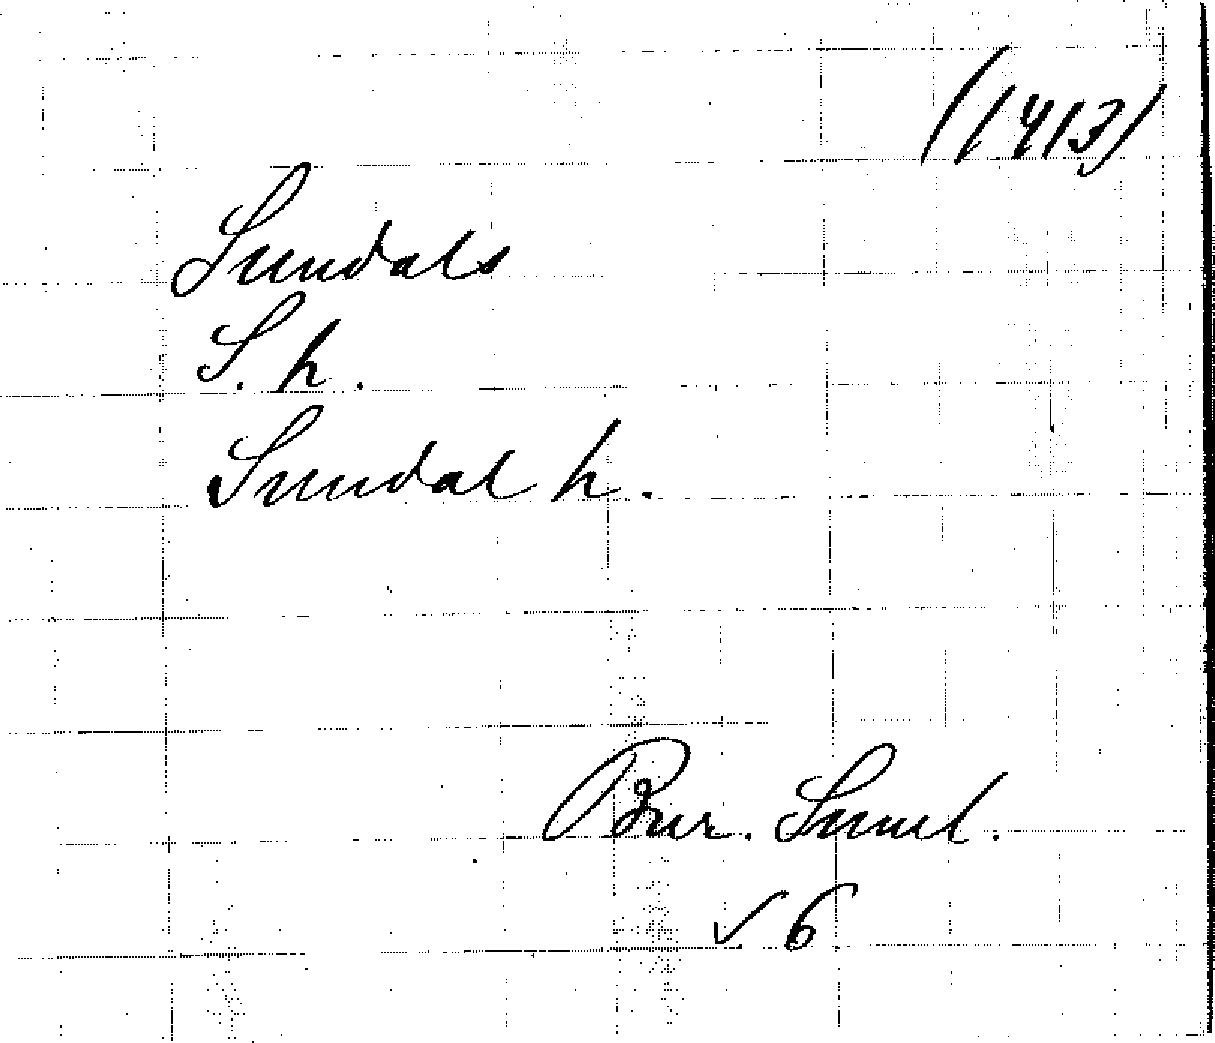 (1413)
Sundals
S. h.
Sundal h.
Bur. Sund.
✓ 6